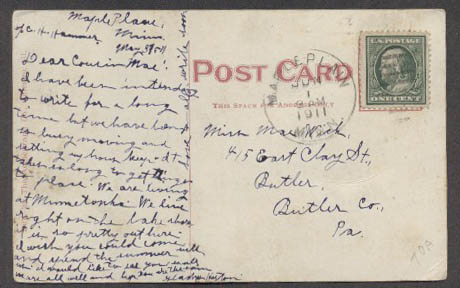 Maple Plane,
c/o C. H. Hammer, Minn.
May 31st 11
Dear Cousin Mae:
I have been intending
to write for a long
time but we have been
so busy moving and
getting my house it
takes so long to get things
to place. We are living
at Minnetonka. We live
right on the lake shore
it is so pretty out here.
I wish you could come
and spend the summer with
me I would like to see you
are all well and hope you are the same
write soon
POST CARD
THIS SPACE FOR ADDRESS ONLY
MAPLE PLAIN
JUN
1
1911
MINN
U.S. POSTAGE
ONE CENT
Miss Mae
415 East Clay St.,
Butler,
Butler Co.,
Pa.